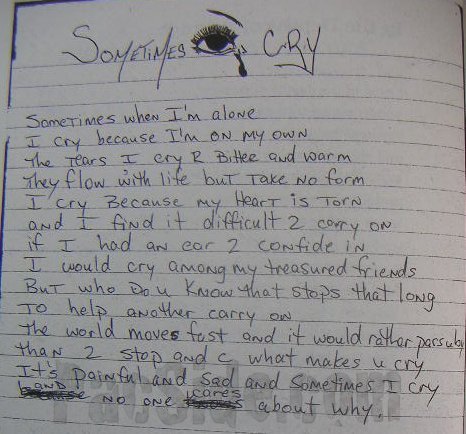 SOMETIMES I CRY
Sometimes when I'm alone
I cry because I'm on my own
The tears I cry R Bitter and warm
They flow with life but take no form
I cry Because my Heart is torn
and I find it difficult 2 carry on
if I had an ear 2 confide in
I would cry among my treasured friends
But who do u know that stops that long
To help another carry on
The world moves fast and it would rather pass u by
than 2 stop and c what makes u cry
It's painful and sad and sometimes I cry
and no one cares about why.